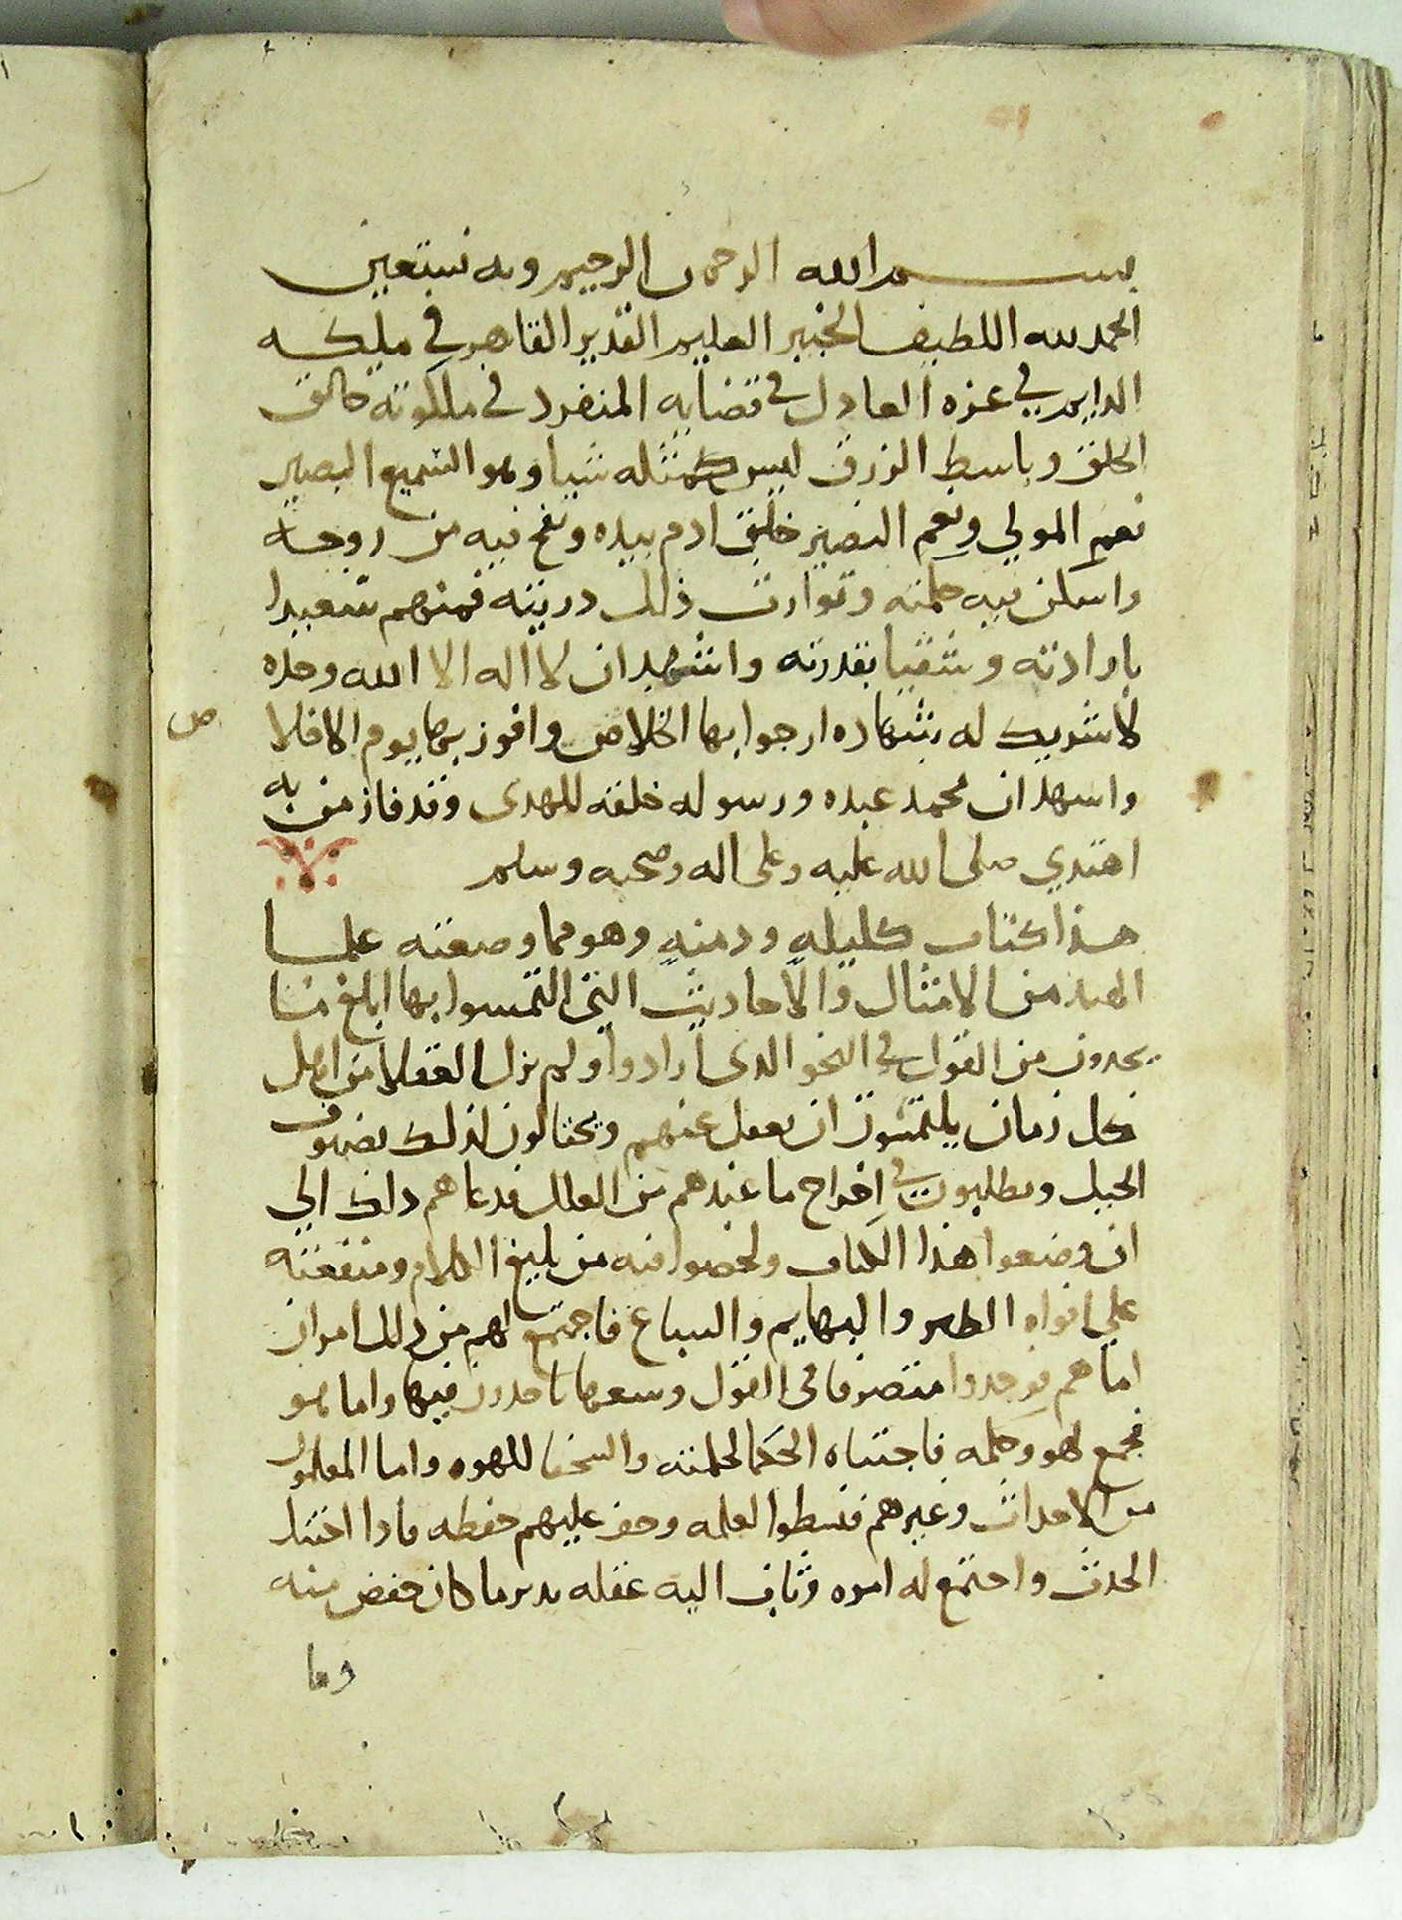 بسم الله الرحمن الرحيم وبه نستعين
الحمد لله اللطيف الخبير العليم القدير القاهر في ملكه
الدايم في عزه العادل في قضايه المنفرد في ملكوته خالق
الخلق وباسط الرزق ليس كمثله شيا وهو السميع البصير
نعم المولي ونعم النصير خلق ادم بيده ونفخ فيه من روحه
واسكن فيه حكمته وتوارث ذلك دريته فمنهم سعيدا
بارادته وشقيا بقدرته واشهد ان لا اله الا الله وحده
لا شريك له شهاده ارجوا بها الخلاص وافوز بها يوم الاقلا
ص
واسهد ان محمد عبده ورسوله خلقه للهدى وقد فاز من به
اهتدي صلى الله عليه وعلى اله وصحبه وسلم
هذا كتاب كليله ودمنه وهو مما وضعته علما
الهند من الامثال والاحاديث التي التمسوا بها ابلغ ما
يجدون من القول في النحو الدى ارادوا ولم يزل العقلا من اهل
كل زمان يلتمسون ان يعقل عنهم ويحتالون لذلك بضروف
الحيل ويطلبون في اخراج ما عندهم من العلل فدعاهم داك الي
ان وضعوا هذا الكتاب ولخصوا فيه من بليغ الكلام ومتقنته
علي افواه الطير والبهايم والسباع فاجتمع لهم من ذلك امران
اما هم فوجدوا منتصرفا في القول وسعوبا ياخدون فيها واما هو
فجمع لهو وحكمه فاجتباه الحكما لحكمته والسخفا للهوه واما المعلمون
من الاحداث وغيرهم فنسطوا لعلمه وخف عليهم حفظه فادا احتبك
الحدث واجتمع له امره وثاب اليه عقله تدبر ما كان حفض منه
وما